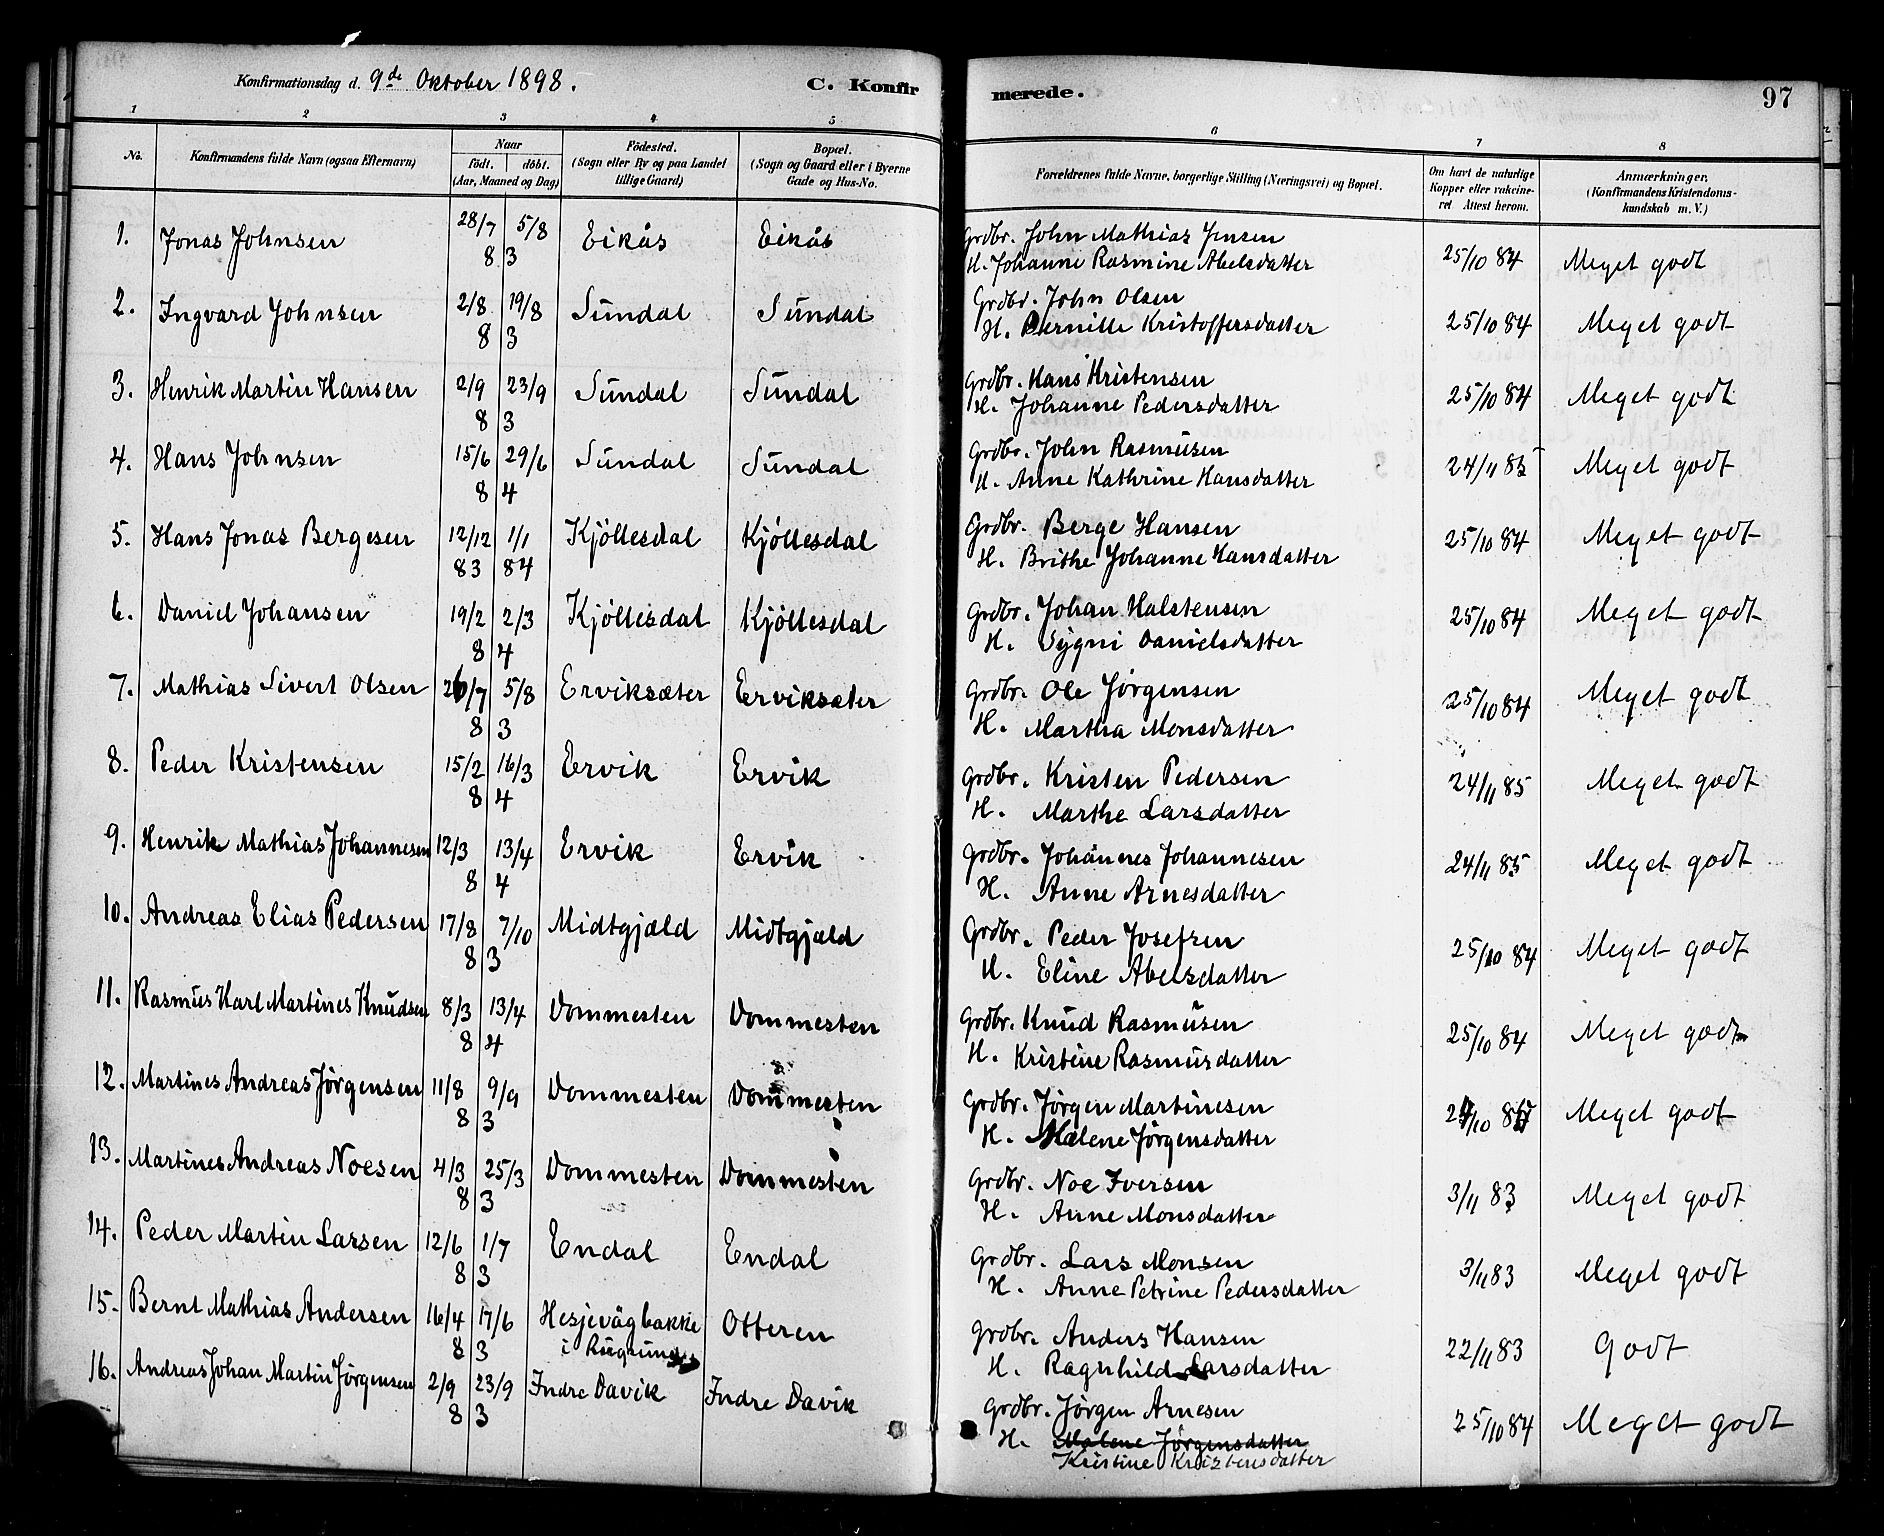 Konfirmationsdag d. 9de Oktober 1898.
C. Konfirmerede.
97
1 2 3 4 5 6 7 8
No.
Konfirmandens fulde Navn (ogsaa Efternavn)
Naar
födt. döbt.
(Aar, Maaned og Dag)
Födested.
(Sogn eller By og paa Landet
tillige Gaard)
Bopæl.
(Sogn og Gaard eller i Byerne
Gade og Hus-No.
Forældrenes fulde Navne, borgerlige Stilling (Næringsvei) og Bopæl.
Om havt de naturlige
Kopper eller vakcine-
ret Attest herom.
Anmærkninger.
(Konfirmandens Kristendoms-
kundskab m. V.)
1. Jonas Johnsen 28/7 5/8 Eikås Eikås Grdbr. John Mathias Jensen 25/10 84 Meget godt
8 3 H. Johanne Rasmine Abelsdatter
2. Ingvard Johnsen 2/8 19/8 Sundal Sundal Grdbr. John Olsen 25/10 84 Meget godt
8 3 H. Pernille Kristoffersdatter
3. Henrik Martin Hansen 2/9 23/9 Sundal Sundal Grdbr. Hans Kristensen 25/10 84 Meget godt
8 3 H. Johanne Pedersdatter
4. Hans Johnsen 15/6 29/6 Sundal Sundal Grdbr. John Rasmusen 24/11 85 Meget godt
8 4 H. Anne Kathrine Hansdatter
5. Hans Jonas Bergesen 12/12 1/1 Kjöllesdal Kjöllesdal Grdbr. Berge Hansen 25/10 84 Meget godt
83 84 H. Brithe Johanne Hansdatter
6. Daniel Johansen 19/2 2/3 Kjöllesdal Kjöllesdal Grdbr. Johan Halstensen 25/10 84 Meget godt
8 4 H. Sygni Danielsdatter
7. Mathias Sivert Olsen 26/7 5/8 Erviksæter Erviksæter Grdbr. Ole Jørgensen 25/10 84 Meget godt
8 3 H. Martha Monsdatter
8. Peder Kristensen 15/2 16/3 Ervik Ervik Grdbr. Kristen Pedersen 24/11 85 Meget godt
8 4 H. Marthe Larsdatter
9. Henrik Mathias Johannesen 12/3 13/4 Ervik Ervik Grdbr. Johannes Johannesen 24/11 85 Meget godt
8 4 H. Anne Arnesdatter
10. Andreas Elias Pedersen 17/8 7/10 Midtgjæld Midtgjæld Grdbr. Peder Josefsen 25/10 84 Meget godt
8 3 H. Eline Abelsdatter
11. Rasmus Karl Martines Knudsen 8/3 13/4 Dommesten Dommesten Grdbr. Knud Rasmusen 25/10 84 Meget godt
8 4 H. Kristine Rasmusdatter
12. Martines Andreas Jørgensen 11/8 9/9 Dommesten Dommesten Grdbr. Jørgen Martinesen Meget godt
8 3 H. Malene Jørgensdatter
13. Martines Andreas Noesen 4/3 25/3 Dommesten Dommesten Grdbr. Noe Iversen 3/11 83 Meget godt
8 3 H. Anne Monsdatter
14. Peder Martin Larsen 12/6 1/7 Endal Endal Grdbr. Lars Monsen 3/11 83 Meget godt
8 3 H. Anne Petrine Pedersdatter
15. Bernt Mathias Andersen 16/4 17/6 Hesjevågbakke Otteren Grdbr. Anders Hansen 22/11 83 Godt
8 3 i Rugsund H. Ragnhild Larsdatter
16. Andreas Johan Martin Jørgensen 2/9 23/9 Indre Davik Indre Davik Grdbr. Jørgen Arnesen 25/10 84 Meget godt
8 3 H. Malene Jörgensdatter
Kristine Kristensdatter